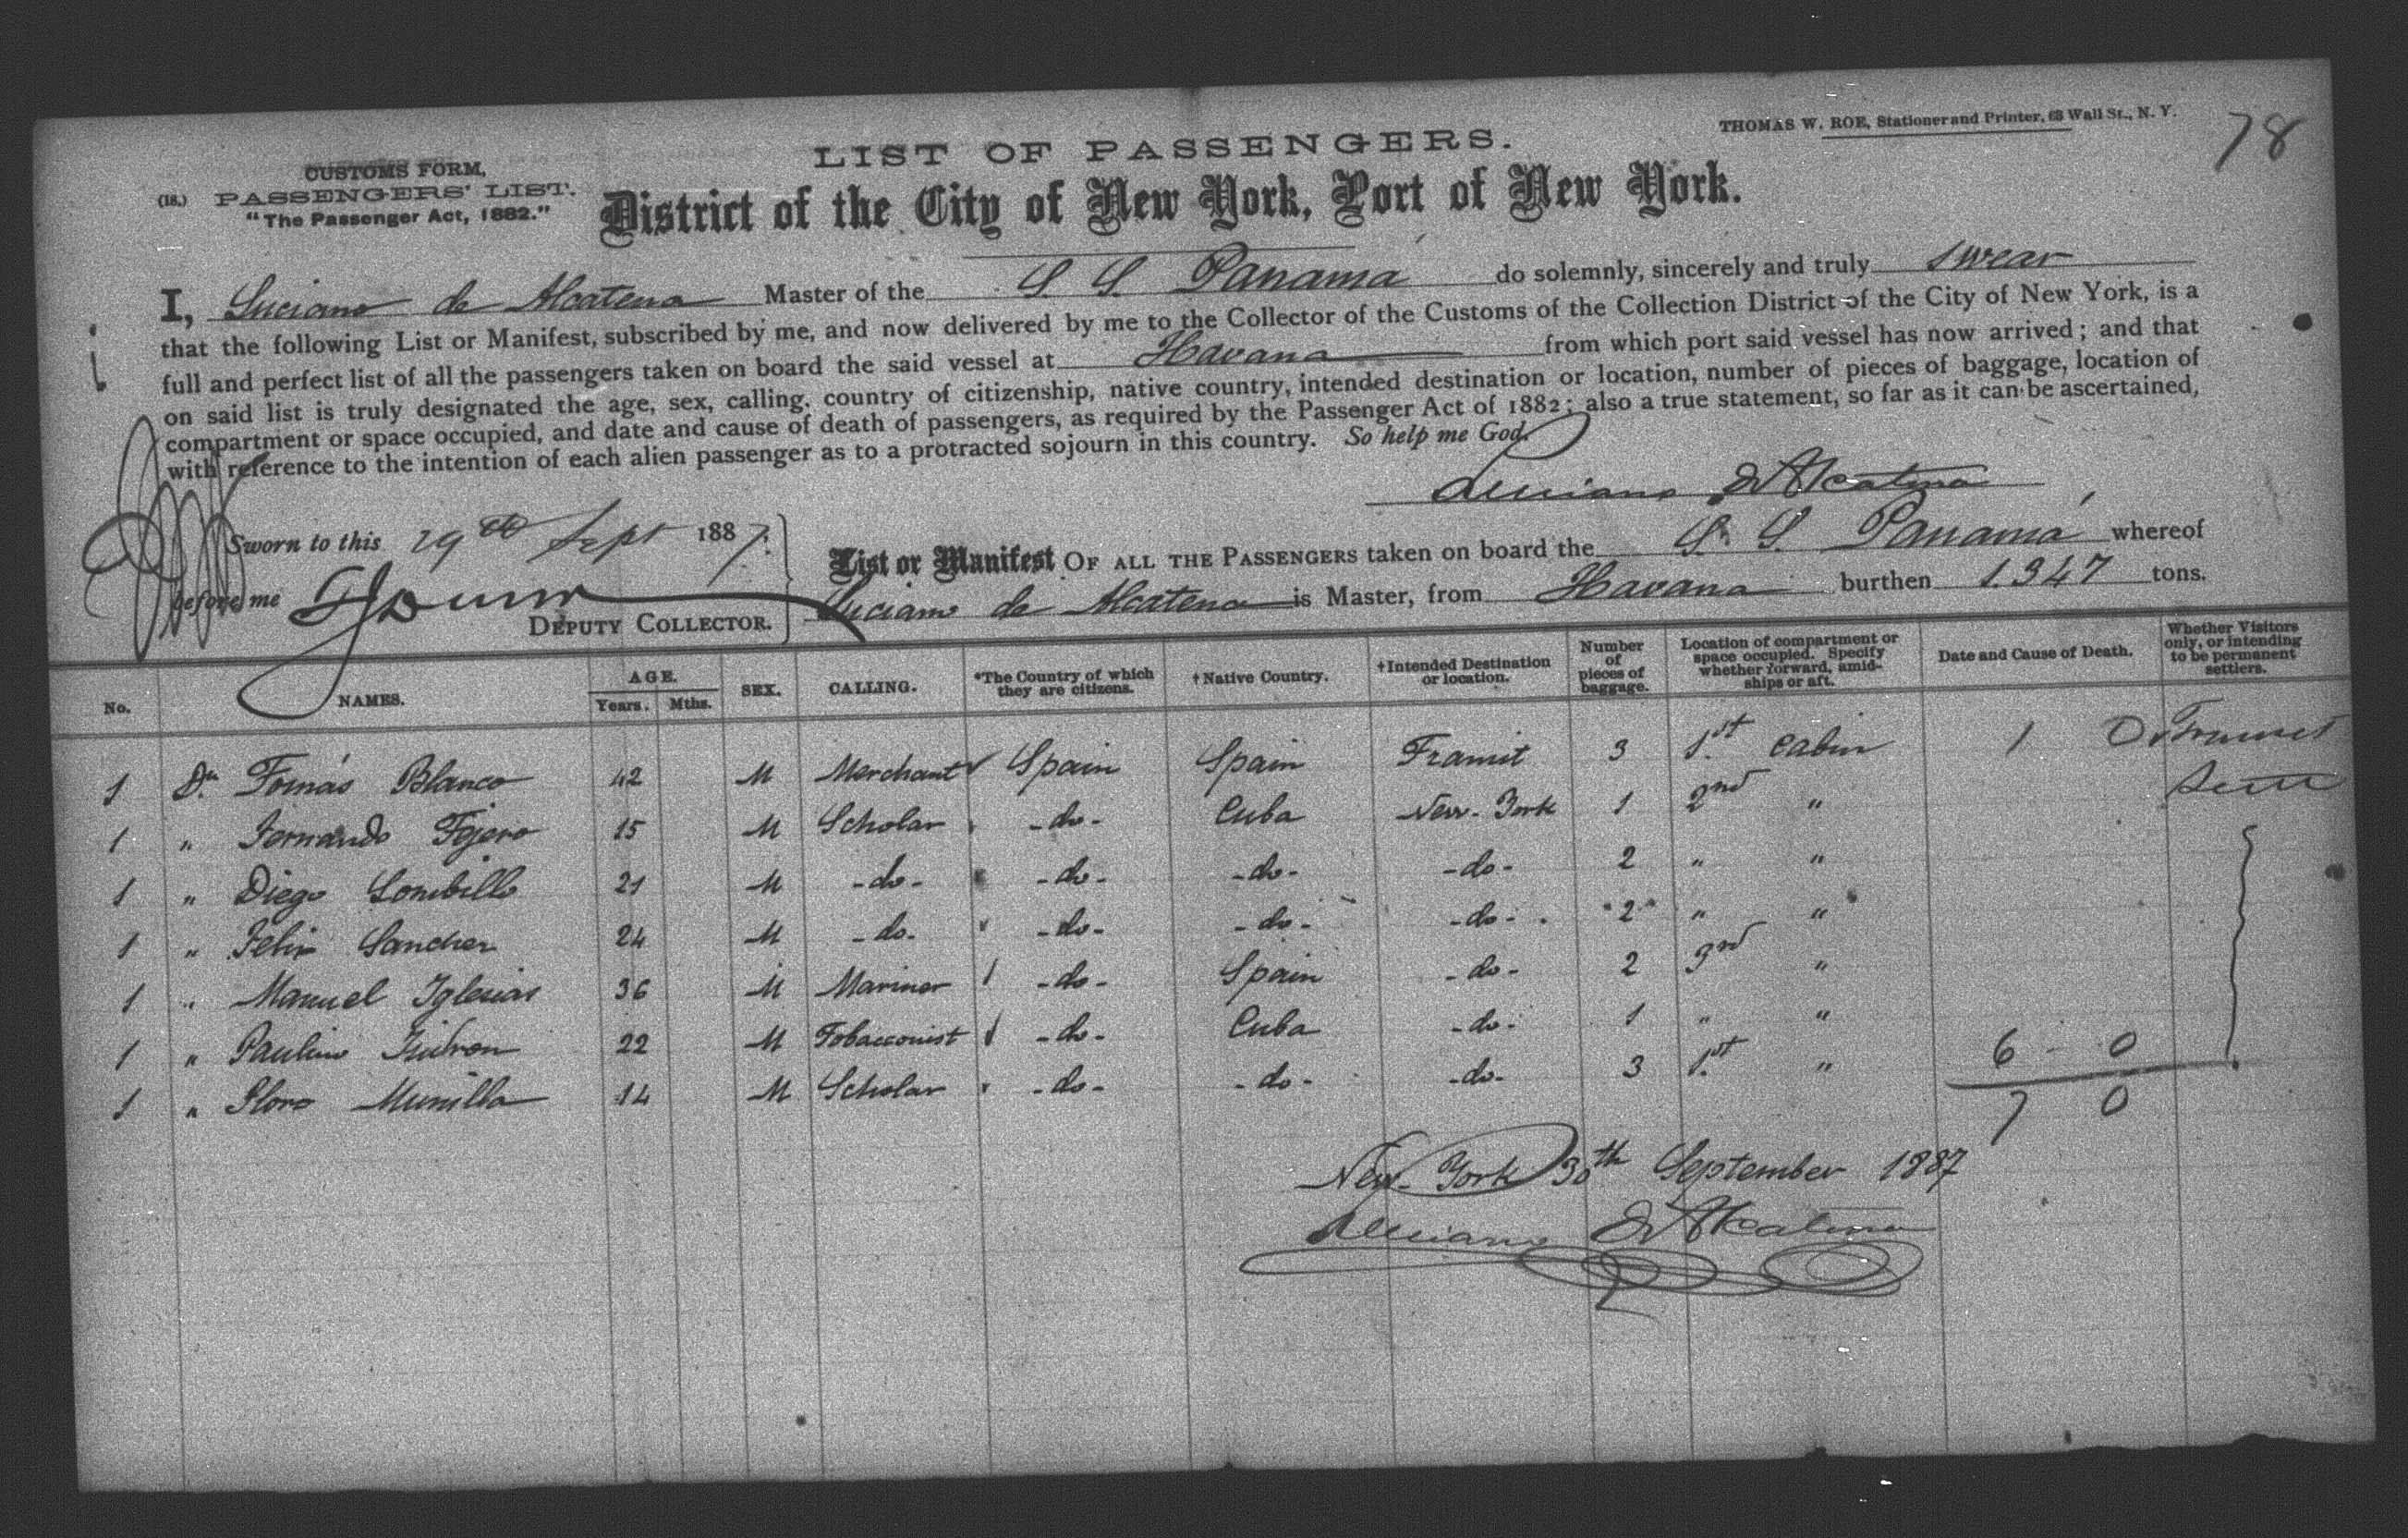 THOMAS W. ROE, Stationer and Printer, 63 Wall St., N. Y.
78
LIST OF PASSENGERS.
CUSTOMS FORM,
(18.) PASSENGERS' LIST.
"The Passenger Act, 1882."
District of the City of New York, Port of New York.
I, Luciano de Alcatena Master of the S. S. Panama do solemnly, sincerely and truly swear
that the following List or Manifest, subscribed by me, and now delivered by me to the Collector of the Customs of the Collection District of the City of New York, is a
full and perfect list of all the passengers taken on board the said vessel at Havana from which port said vessel has now arrived; and that
on said list is truly designated the age, sex, calling, country of citizenship, native country, intended destination or location, number of pieces of baggage, location of
compartment or space occupied, and date and cause of death of passengers, as required by the Passenger Act of 1882; also a true statement, so far as it can be ascertained,
with reference to the intention of each alien passenger as to a protracted sojourn in this country. So help me God.
Luciano de Alcatena
Sworn to this 29th Sept 1887.
before me
DEPUTY COLLECTOR.
List or Manifest OF ALL THE PASSENGERS taken on board the S. S. Panamá whereof
Luciano de Alcatena is Master, from Havana burthen 1.347 tons.
No. NAMES. AGE. Years. Mths. SEX. CALLING. *The Country of which they are citizens. †Native Country. †Intended Destination or location. Number of pieces of baggage. Location of compartment or space occupied. Specify whether forward, amidships or aft. Date and Cause of Death. Whether Visitors only, or intending to be permanent settlers.
1 Dn. Tomás Blanco 42 M Merchant Spain Spain Transit 3 1st. cabin 1 0 Transit
1 " Fernando 15 M Scholar -do- Cuba New-York 1 2nd " Sett
1 " Diego Lombillo 21 M -do- -do- -do- -do- 2 " "
1 " Felix Sanchez 24 M -do- -do- -do- -do- 2 " "
1 " Manuel Iglesias 36 M Mariner -do- Spain -do- 2 3rd "
1 " Paulino 22 M Tobacconist -do- Cuba -do- 1 " "
1 " Floro Munilla 14 M Scholar -do- -do- -do- 3 1st. " 6 0
7 0
New-York 30th September 1887
Luciano de Alcatena